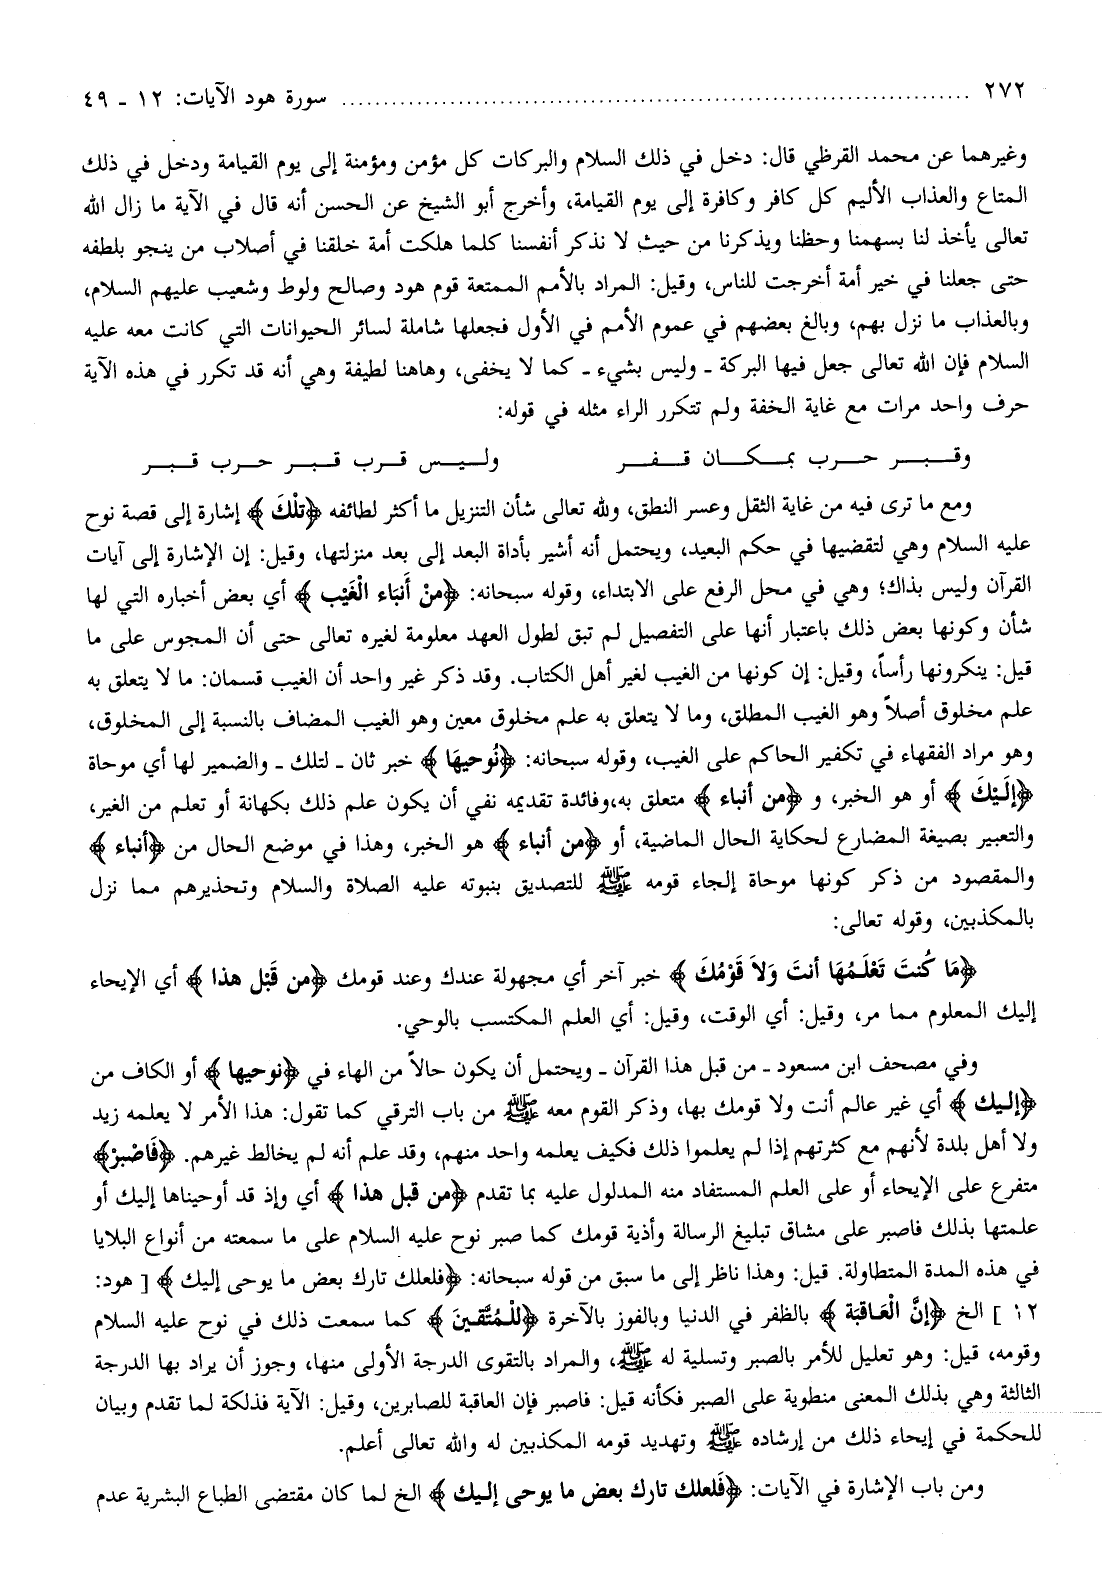 ٢٧٢ ........................................................................ سورة هود الآيات: ١٢ - ٤٩
وغيرهما عن محمد القرظي قال: دخل في ذلك السلام والبركات كل مؤمن ومؤمنة إلى يوم القيامة ودخل في ذلك
المتاع والعذاب الأليم كل كافر وكافرة إلى يوم القيامة، وأخرج أبو الشيخ عن الحسن أنه قال في الآية ما زال الله
تعالى يأخذ لنا بسهمنا وحظنا ويذكرنا من حيث لا نذكر أنفسنا كلما هلكت أمة خلقنا في أصلاب من ينجو بلطفه
حتى جعلنا في خير أمة أخرجت للناس، وقيل: المراد بالأمم الممتعة قوم هود وصالح ولوط وشعيب عليهم السلام،
وبالعذاب ما نزل بهم، وبالغ بعضهم في عموم الأمم في الأول فجعلها شاملة لسائر الحيوانات التي كانت معه عليه
السلام فإن الله تعالى جعل فيها البركة ـ وليس بشيء ـ كما لا يخفى، وهاهنا لطيفة وهي أنه قد تكرر في هذه الآية
حرف واحد مرات مع غاية الخفة ولم تتكرر الراء مثله في قوله:
وقبر حرب بمكان قفر وليس قرب قبر حرب قبر
ومع ما ترى فيه من غاية الثقل وعسر النطق، ولله تعالى شأن التنزيل ما أكثر لطائفه ﴿تلْكَ﴾ إشارة إلى قصة نوح
عليه السلام وهي لتقضيها في حكم البعيد، ويحتمل أنه أشير بأداة البعد إلى بعد منزلتها، وقيل: إن الإشارة إلى آيات
القرآن وليس بذاك؛ وهي في محل الرفع على الابتداء، وقوله سبحانه: ﴿منْ أَنبَاء الْغَيْب﴾ أي بعض أخباره التي لها
شأن وكونها بعض ذلك باعتبار أنها على التفصيل لم تبق لطول العهد معلومة لغيره تعالى حتى أن المجوس على ما
قيل: ينكرونها رأساً، وقيل: إن كونها من الغيب لغير أهل الكتاب. وقد ذكر غير واحد أن الغيب قسمان: ما لا يتعلق به
علم مخلوق أصلاً وهو الغيب المطلق، وما لا يتعلق به علم مخلوق معين وهو الغيب المضاف بالنسبة إلى المخلوق،
وهو مراد الفقهاء في تكفير الحاكم على الغيب، وقوله سبحانه: ﴿نُوحيهَا﴾ خبر ثان ـ لتلك ـ والضمير لها أي موحاة
﴿إلَيْكَ﴾ أو هو الخبر، و ﴿من أنباء﴾ متعلق به،وفائدة تقديمه نفي أن يكون علم ذلك بكهانة أو تعلم من الغير،
والتعبير بصيغة المضارع لحكاية الحال الماضية، أو ﴿من أنباء﴾ هو الخبر، وهذا في موضع الحال من ﴿أنباء﴾
والمقصود من ذكر كونها موحاة إلجاء قومه ﷺ للتصديق بنبوته عليه الصلاة والسلام وتحذيرهم مما نزل
بالمكذبين، وقوله تعالى:
﴿مَا كُنتَ تَعْلَمُهَا أنتَ وَلاَ قَوْمُكَ﴾ خبر آخر أي مجهولة عندك وعند قومك ﴿من قَبْل هذا﴾ أي الإيحاء
إليك المعلوم مما مر، وقيل: أي الوقت، وقيل: أي العلم المكتسب بالوحي.
وفي مصحف ابن مسعود ـ من قبل هذا القرآن ـ ويحتمل أن يكون حالاً من الهاء في ﴿نوحيها﴾ أو الكاف من
﴿إليك﴾ أي غير عالم أنت ولا قومك بها، وذكر القوم معه ﷺ من باب الترقي كما تقول: هذا الأمر لا يعلمه زيد
ولا أهل بلدة لأنهم مع كثرتهم إذا لم يعلموا ذلك فكيف يعلمه واحد منهم، وقد علم أنه لم يخالط غيرهم. ﴿فَاصْبرْ﴾
متفرع على الإيحاء أو على العلم المستفاد منه المدلول عليه بما تقدم ﴿من قبل هذا﴾ أي وإذ قد أوحيناها إليك أو
علمتها بذلك فاصبر على مشاق تبليغ الرسالة وأذية قومك كما صبر نوح عليه السلام على ما سمعته من أنواع البلايا
في هذه المدة المتطاولة. قيل: وهذا ناظر إلى ما سبق من قوله سبحانه: ﴿فلعلك تارك بعض ما يوحى إليك﴾ [هود:
١٢] الخ ﴿إنَّ الْعَاقبَة﴾ بالظفر في الدنيا وبالفوز بالآخرة ﴿للْمُتَّقينَ﴾ كما سمعت ذلك في نوح عليه السلام
وقومه، قيل: وهو تعليل للأمر بالصبر وتسلية له ﷺ، والمراد بالتقوى الدرجة الأولى منها، وجوز أن يراد بها الدرجة
الثالثة وهي بذلك المعنى منطوية على الصبر فكأنه قيل: فاصبر فإن العاقبة للصابرين، وقيل: الآية فذلكة لما تقدم وبيان
للحكمة في إيحاء ذلك من إرشاده ﷺ وتهديد قومه المكذبين له والله تعالى أعلم.
ومن باب الإشارة في الآيات: ﴿فَلعلك تارك بعض ما يوحى إليك﴾ الخ لما كان مقتضى الطباع البشرية عدم